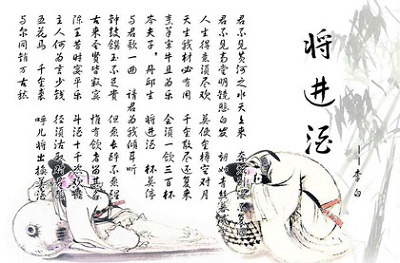 将进酒
——李白
君不见黄河之水天上来 奔
君不见高堂明镜悲白发 朝如青丝
人生得意须尽欢 莫使空樽空对月
天生我材必有用 千金散尽还复来
烹羊宰牛且为乐 会须一饮三百杯
岑夫子，丹邱生 将进酒 杯莫停
与君歌一曲 请君为我倾耳听
钟鼓馔玉不足贵 但愿长醉不愿醒
古来圣贤皆寂寞 惟有饮者留其名
陈王昔时宴平乐 斗酒十千恣欢谑
主人何为言少钱 径须沽取对君酌
五花马 千金裘 呼儿将出换美酒
与尔同销万古愁